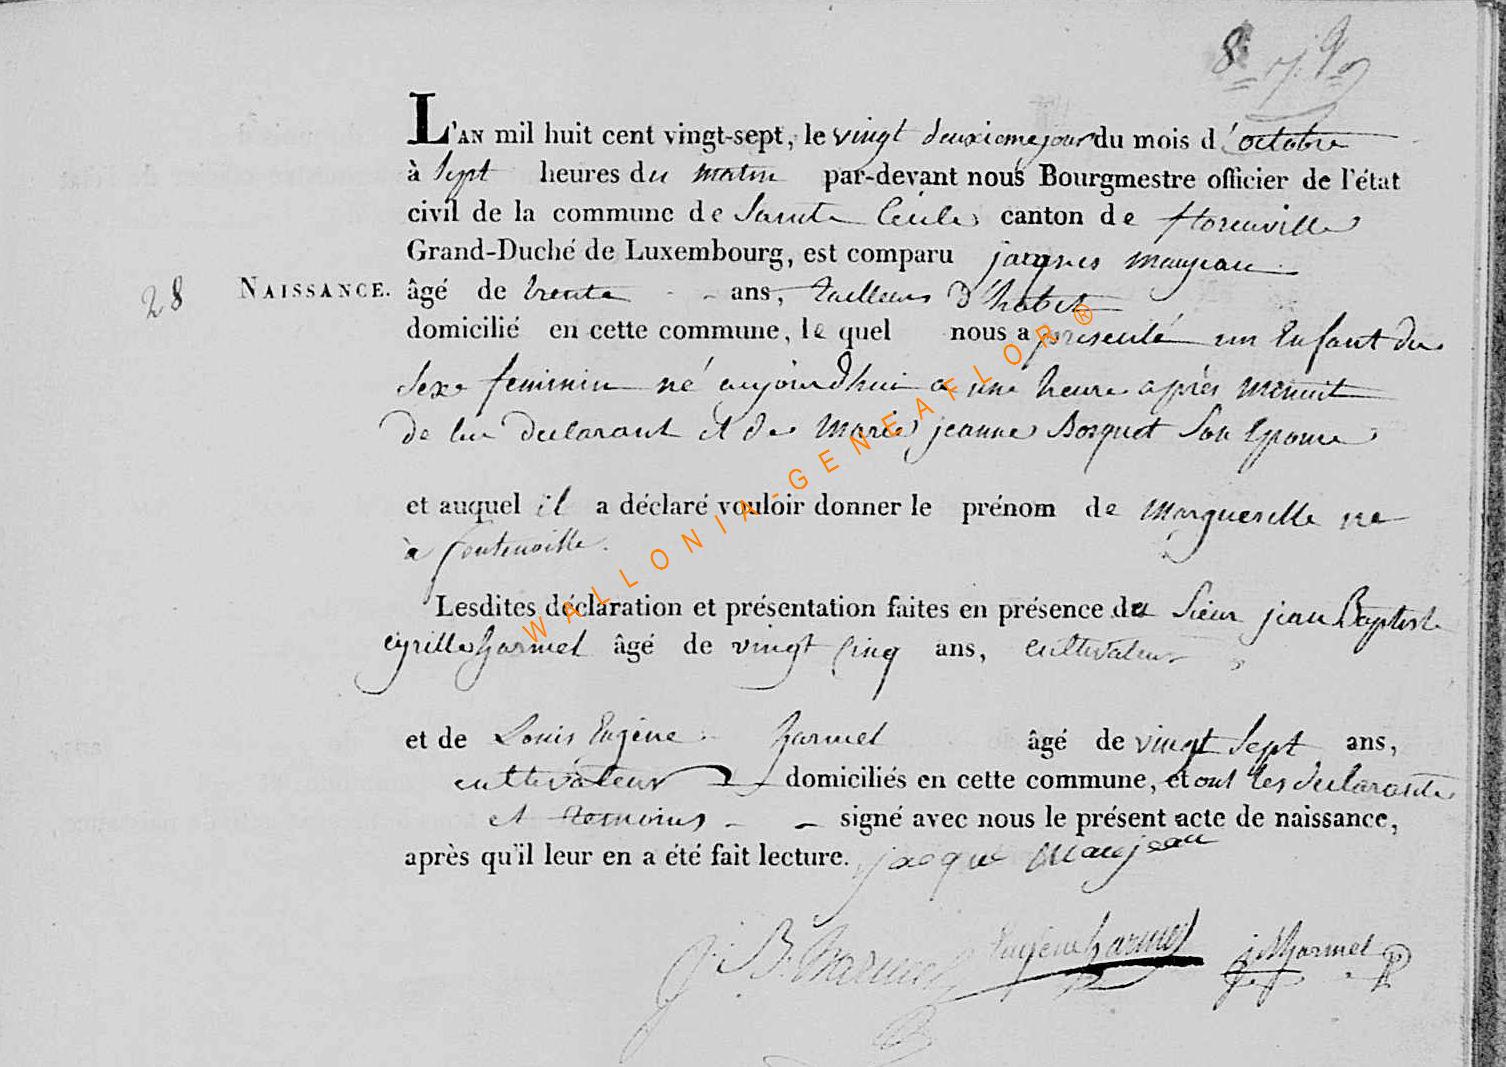 8
L'AN mil huit cent vingt-sept, le vingt deuxieme jour du mois d'octobre
à sept heures du matin par-devant nous Bourgmestre officier de l'état
civil de la commune de Sainte Cecile canton de florenville
Grand-Duché de Luxembourg, est comparu jacques maujean
28 NAISSANCE. âgé de trente ans, tailleur d'habit
domicilié en cette commune, le quel nous a presenté un Enfant du
sexe feminin né aujourdhui a une heure après menuit
de lui declarant et de Marie jeanne Bosquet Son Epouse
et auquel il a déclaré vouloir donner le prénom de Marguerille née
à fontenoille.
Lesdites déclaration et présentation faites en présence de Sieur jean Baptiste
cyrille harmel âgé de vingt Cinq ans, cultivateur
et de Louis Eugène harmel âgé de vingt Sept ans,
cultivateur domiciliés en cette commune, et ont les declarants
et temoins signé avec nous le présent acte de naissance,
après qu'il leur en a été fait lecture. jacque Maujean
J. B. harmel Eugène harmel j harmel
WALLONIA-GENEAFLOR®